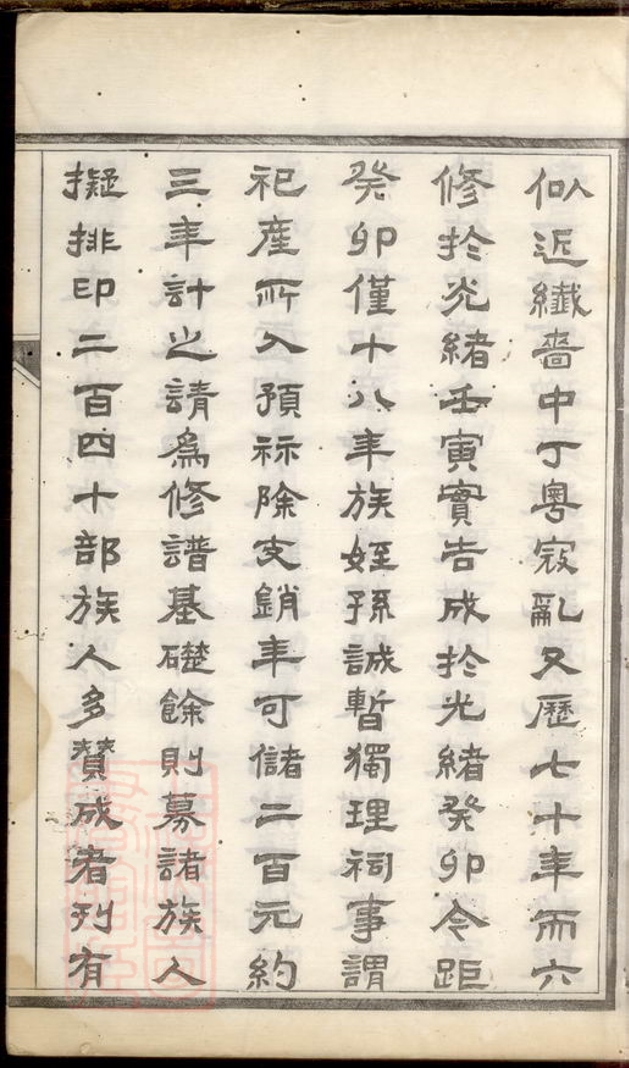 似近纖嗇中丁粵寇亂又歷七十年而六
修於光緒壬寅實告成於光緒癸卯令距
癸卯僅十八年族姪孫誠暫獨理祠事謂
祀產所入預祘除支銷年可儲二百元約
三年計之請為修譜基礎餘則募諸族人
擬排印二百四十部族人多贊成者刋有